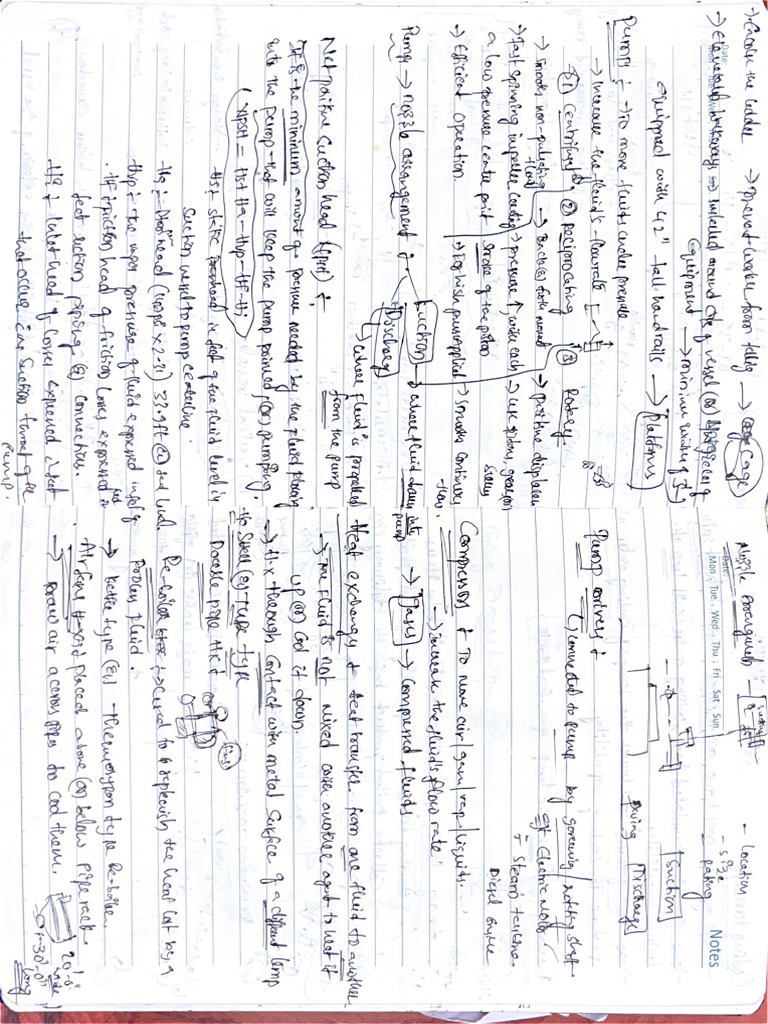 → Encase the ladder → prevent worker from falling → Cage
→ Elevated walkways → installed around one vessel (or) group of
equipment → minimum width of 3'
equipped with 42" tall handrails → Platforms
Pumps :- → To move fluids under pressure
→ Increase the fluid's flowrate
① Centrifugal ② Reciprocating ③ Rotary
→ Smooth non-pulsating flow → Back & forth moment → positive displacement
→ Fast spinning impeller creating → pressure ↑ with each → use piston, gear (or)
a low pressure centre point stroke of the piston screw
→ efficient operation. → For high pressure applied → smooth continuous
flow.
Pump → nozzle arrangement :-
Suction → where fluid drawn into
pump
Discharge
→ where fluid is propelled
from the pump
Net positive suction head (NPSH) :-
It is the minimum amount of pressure needed by the fluid flowing
into the pump that will keep the pump primed (or) pumping.
NPSH = Hs + Ha - Hvp - Hf - Hi
Hs : static head in feet of the fluid level in
suction vessel to pump centerline.
Ha : head (14.7 psi x 2.31) 33.9 ft @ sea level.
Hvp : the vapor pressure of fluid expressed in feet of
Hf : friction head of friction losses expressed in
feet suction piping (or) connection.
Hi : Inlet head of losses expressed in feet
that occur in suction throat of the
pump.
Date
Mon . Tue . Wed . Thu . Fri . Sat . Sun
Notes
Nozzle arrangements
- Location
- size
- Rating
Suction
Discharge
Pump drivers :-
↳ connected to pump by rotating shaft
eg:- Electric motor
- Steam turbine
Diesel engine
Compressors : To move air/gas/vap/liquids.
→ increase the fluid's flow rate.
→ Gases → Compressed fluids
Heat exchangers :- Heat transfer from one fluid to another
→ one fluid is not mixed with another agent to heat it
up (or) cool it down.
→ Hx through contact with metal surface of a different temp
① Shell & tube type
Double pipe HX :-
Re-boiler → used to replenish the heat lost by a
process fluid.
→ kettle type (or) thermosyphon type Re-boiler.
Air fans : → placed above (or) below pipe rack.
→ Draw air across pipes to cool them.
20'-0"
wide
30'-0"
long